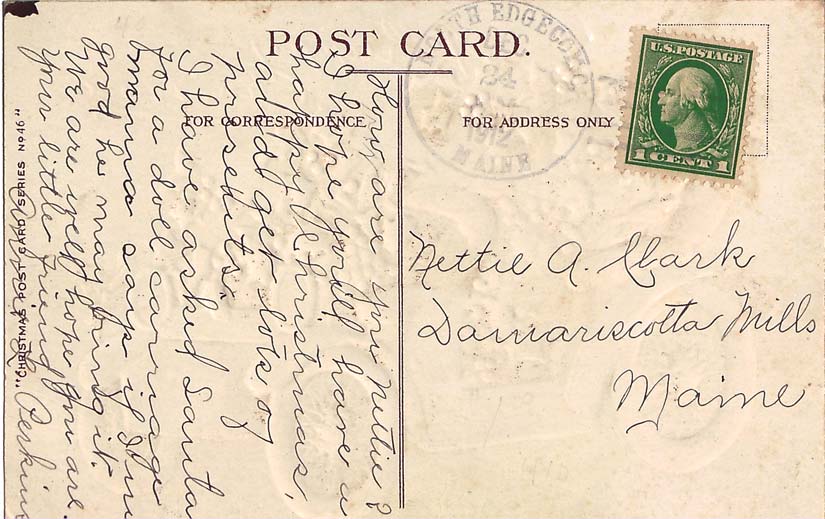 POST CARD.
FOR CORRESPONDENCE
FOR ADDRESS ONLY
NORTH EDGECOMB
24
1912
MAINE
U.S. POSTAGE
1 CENT 1
Nettie A. Clark
Damariscotta Mills
Maine
How are you Nettie?
I hope you'll have a
happy Christmas,
and get lots of
presents.
I have asked Santa
for a doll carriage
mama says if I'm
good he may bring it.
We are well hope you are.
your little friend
L. Perkins
"CHRISTMAS POST CARD SERIES No 46"